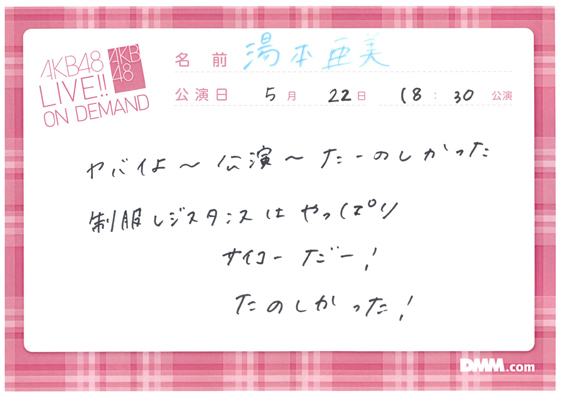 AKB48
LIVE!!
ON DEMAND
AKB
48
名前 湯本亜美
公演日 5月 22日 18:30 公演
ヤバイよ〜公演〜たーのしかった
制服レジスタンスはやっぱり
サイコーだー!
たのしかった!
DMM.com